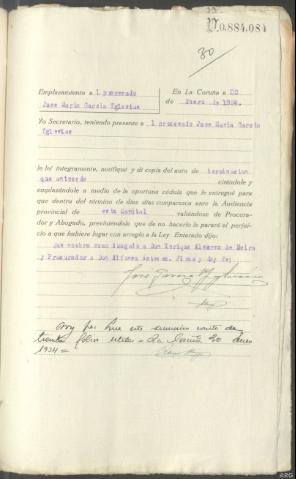 N.0.884.084
30
Emplazamiento a l procesado
Jose Maria Garcia Yglesias
En La Coruña a 20
de Enero de 1934.
Yo Secretario, teniendo presente a l procesado Jose Maria Garcia
Yglesias
le leí íntegramente, notifiqué y dí copia del auto de terminacion
que antecede citándole y
emplazándole a medio de la oportuna cédula que le entregué para
que dentro del término de diez días comparezca ante la Audiencia
provincial de esta Capital valiéndose de Procura-
dor y Abogado, previniéndole que de no hacerlo le parará el perjui-
cio a que hubiere lugar con arreglo a la Ley. Enterado dijo:
Que nombra como Abogado a Don Enrique Alvarez de Neira
y Procurador a Don Alfonso
Firma y doy fe:
Jose Garcia Yglesias
Doy fe: Que este sumario consta de
treinta folios utiles = La Coruña 20 Enero
1934 =
ARG